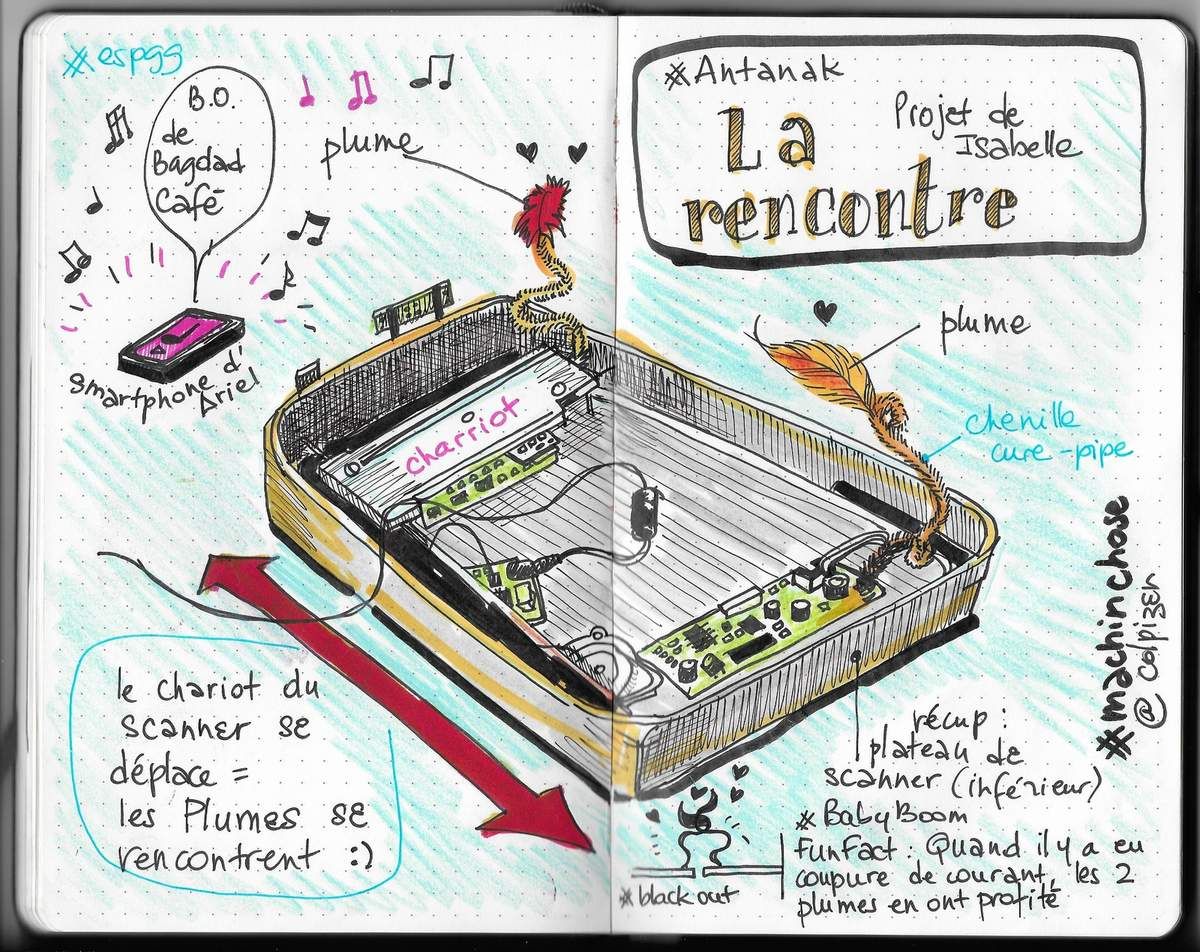 #espgg
B.O.
de
Bagdad
Café
plume
smartphone d'
Ariel
charriot
le chariot du
scanner se
déplace =
les Plumes se
rencontrent :)
#Antanak
La
rencontre
Projet de
Isabelle
plume
chenille
cure-pipe
#machinchose
@colpizen
récup :
plateau de
scanner (inférieur)
#BabyBoom
FunFact : Quand il y a eu
coupure de courant, les 2
plumes en ont profité
#black out